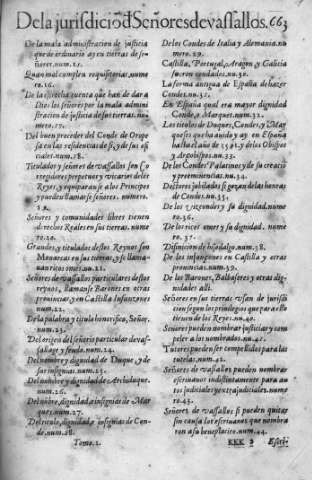 De la jurisdiciō d̄ Señores de vassallos. 663
De la mala administracion de justicia
que de ordinario ay en tierras de se-
ñores. num. 15.
Quan mal cumplen requisitorias. nume
ro. 16.
De la estrecha cuenta que han de dar a
Dios los señores por la mala admini
stracion de justicia de sus tierras. nu-
mero. 17.
Del buen proceder del Conde de Orope
sa en las residencias de sí, y de sus ofi
ciales. num. 18.
Titulados y señores de vassallos son co
rregidores perpetuos y vicarios de los
Reyes, y equiparanse a los Principes
y puedense llamar señores. numero.
19.
Señores y comunidades libres tienen
derechos Reales en sus tierras. nume
ro. 20.
Grandes, y titulados destos Reynos son
Monarcas en sus tierras, y se llama-
uan ricos omes. nu. 21.
Señores de vassallos particulares destos
reynos, llamanse Barones en otras
prouincias, y en Castilla Infanzones
num. 22.
De la palabra y titulo honorifico, Señor,
num. 23.
Del origen del señorio particular de vas-
sallage y feudo. num. 24.
Del nombre y dignidad de Duque, y de
sus insignias. num. 25.
Del nombre y dignidad de Archiduque.
num. 26.
Del nombre, dignidad e insignias de Mar
ques. num. 27
Del titulo, dignidad e insignias de Con-
de. num. 28.
Tomo. 1.
De los Condes de Italia y Alemania. nu
mero. 29.
Castilla, Portugal, Aragon, y Galicia
fueron condados. nu. 30.
La forma antigua de España de hazer
Condes. nu. 31.
En España qual era mayor dignidad
Conde, o Marques. num. 32.
Los titulos de Duques, Condes, y Mar
queses que ha auido y ay en España
hasta el año de 1595. y de los Obispos
y Arçobispos. nu. 33.
De los Condes Palatinos y de su creació
y preeminencias. nu. 34.
Doctores jubilados si gozan de las honras
de Condes. nu. 35.
De los vizcondes y su dignidad. nume
ro. 36.
De los ricos omes y su dignidad. nume
ro. 37.
Difinicion de hidalgo. num. 38.
De los infançones en Castilla y otras
prouincias. num. 39.
De los Barones, Balbasores y otras dig-
nidades alli.
Señores en sus tierras vsan de jurisdi
cion segun los priuilegios que para ello
tienen de los Reyes. nu. 40.
Señores pueden nombrar justicias y com
peler a los nombrados. nu. 41.
Tutores pueden ser compelidos para las
tutelas. num. 42.
Señores de vassallos pueden nombrar
escriuanos indistintamente para au
tos judiciales y extrajudiciales. nume
ro. 43.
Señores de vassallos si pueden quitar
sin causa los escriuanos que nombra
ron a su beneplacito. num. 44.
KKK 2 Escri-